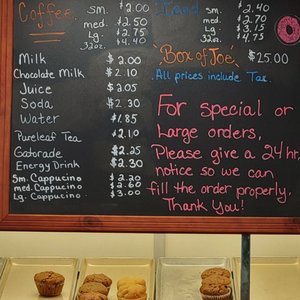 Coffee
sm. $2.00
med. $2.50
Lg. $2.75
32oz. $4.75
Milk $2.00
Chocolate Milk $2.10
Juice $2.05
Soda $2.30
Water $1.85
Pureleaf Tea $2.10
Gatorade $2.25
Energy Drink $2.30
Sm. Cappucino $2.20
med. Cappucino $2.60
Lg. Cappucino $3.00
Iced
sm. $2.40
med. $2.70
Lg. $3.75
32oz.
"Box of Joe" $25.00
All prices include Tax.
For special or
Large orders,
Please give a 24 hr.
notice so we can
fill the order properly.
Thank You!